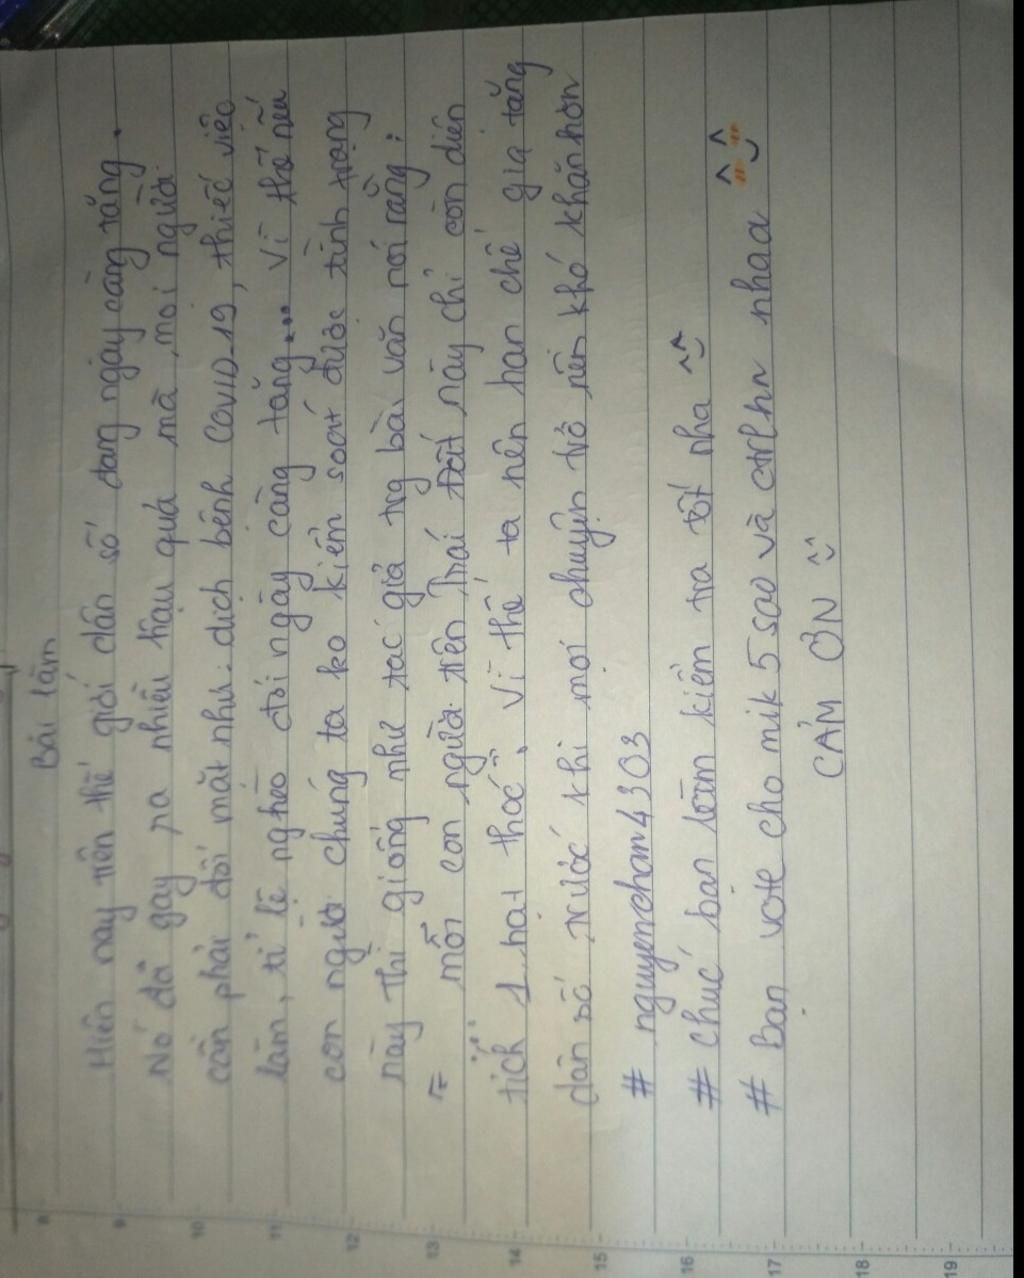 Bài làm
Hiện nay trên thế giới dân số đang ngày càng tăng.
Nó đã gây ra nhiều hậu quả mà mọi người
cần phải đối mặt như: dịch bệnh COVID-19, thiếu việc
làm, tỉ lệ nghèo đói ngày càng tăng... Vì thế nếu
con người chúng ta ko kiểm soát được tình trạng
này thì giống như tác giả trg bài văn nói rằng:
mỗi con người trên Trái Đất này chỉ còn diện
tích 1 hạt thóc. Vì thế ta nên hạn chế gia tăng
dân số trước khi mọi chuyện trở nên khó khăn hơn
# nguyencham4303
# chúc bạn làm kiểm tra tốt nha ^^
# Bạn vote cho mik 5 sao và ctrlhn nhaa ^^
CẢM ƠN ^^
8
9
10
11
12
13
14
15
16
17
18
19